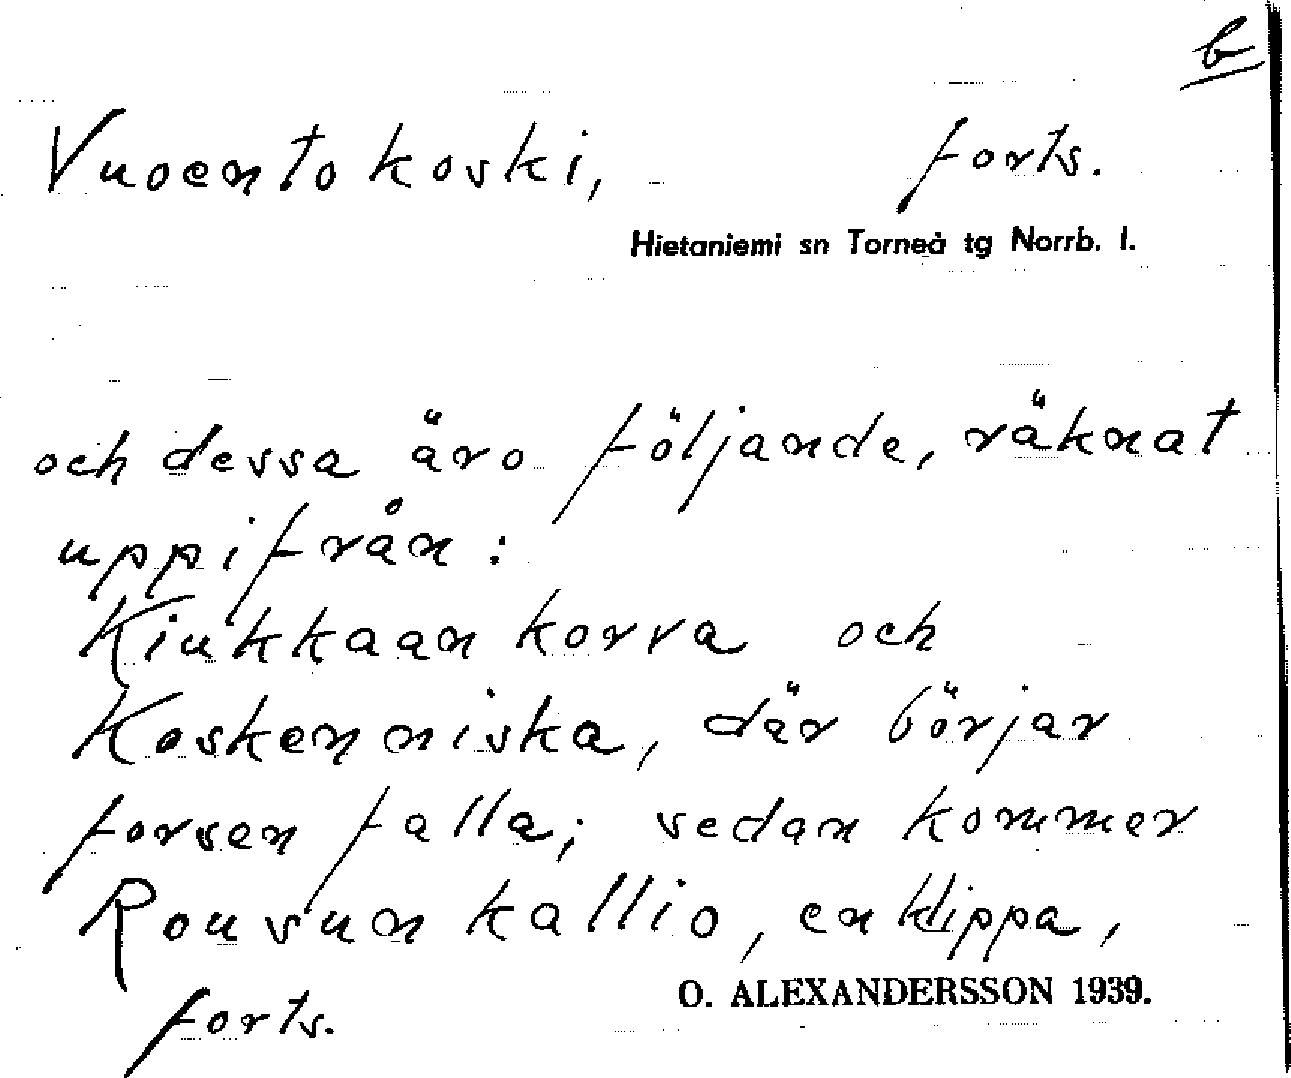 b
Vuoento koski, forts.
Hietaniemi sn Torneå tg Norrb. l.
och dessa äro följande, räknat
uppifrån:
Kiukkaan korva och
Koskenniska, där börjar
forsen falla; sedan kommer
Rousun kallio, en klippa,
forts.
O. ALEXANDERSSON 1939.